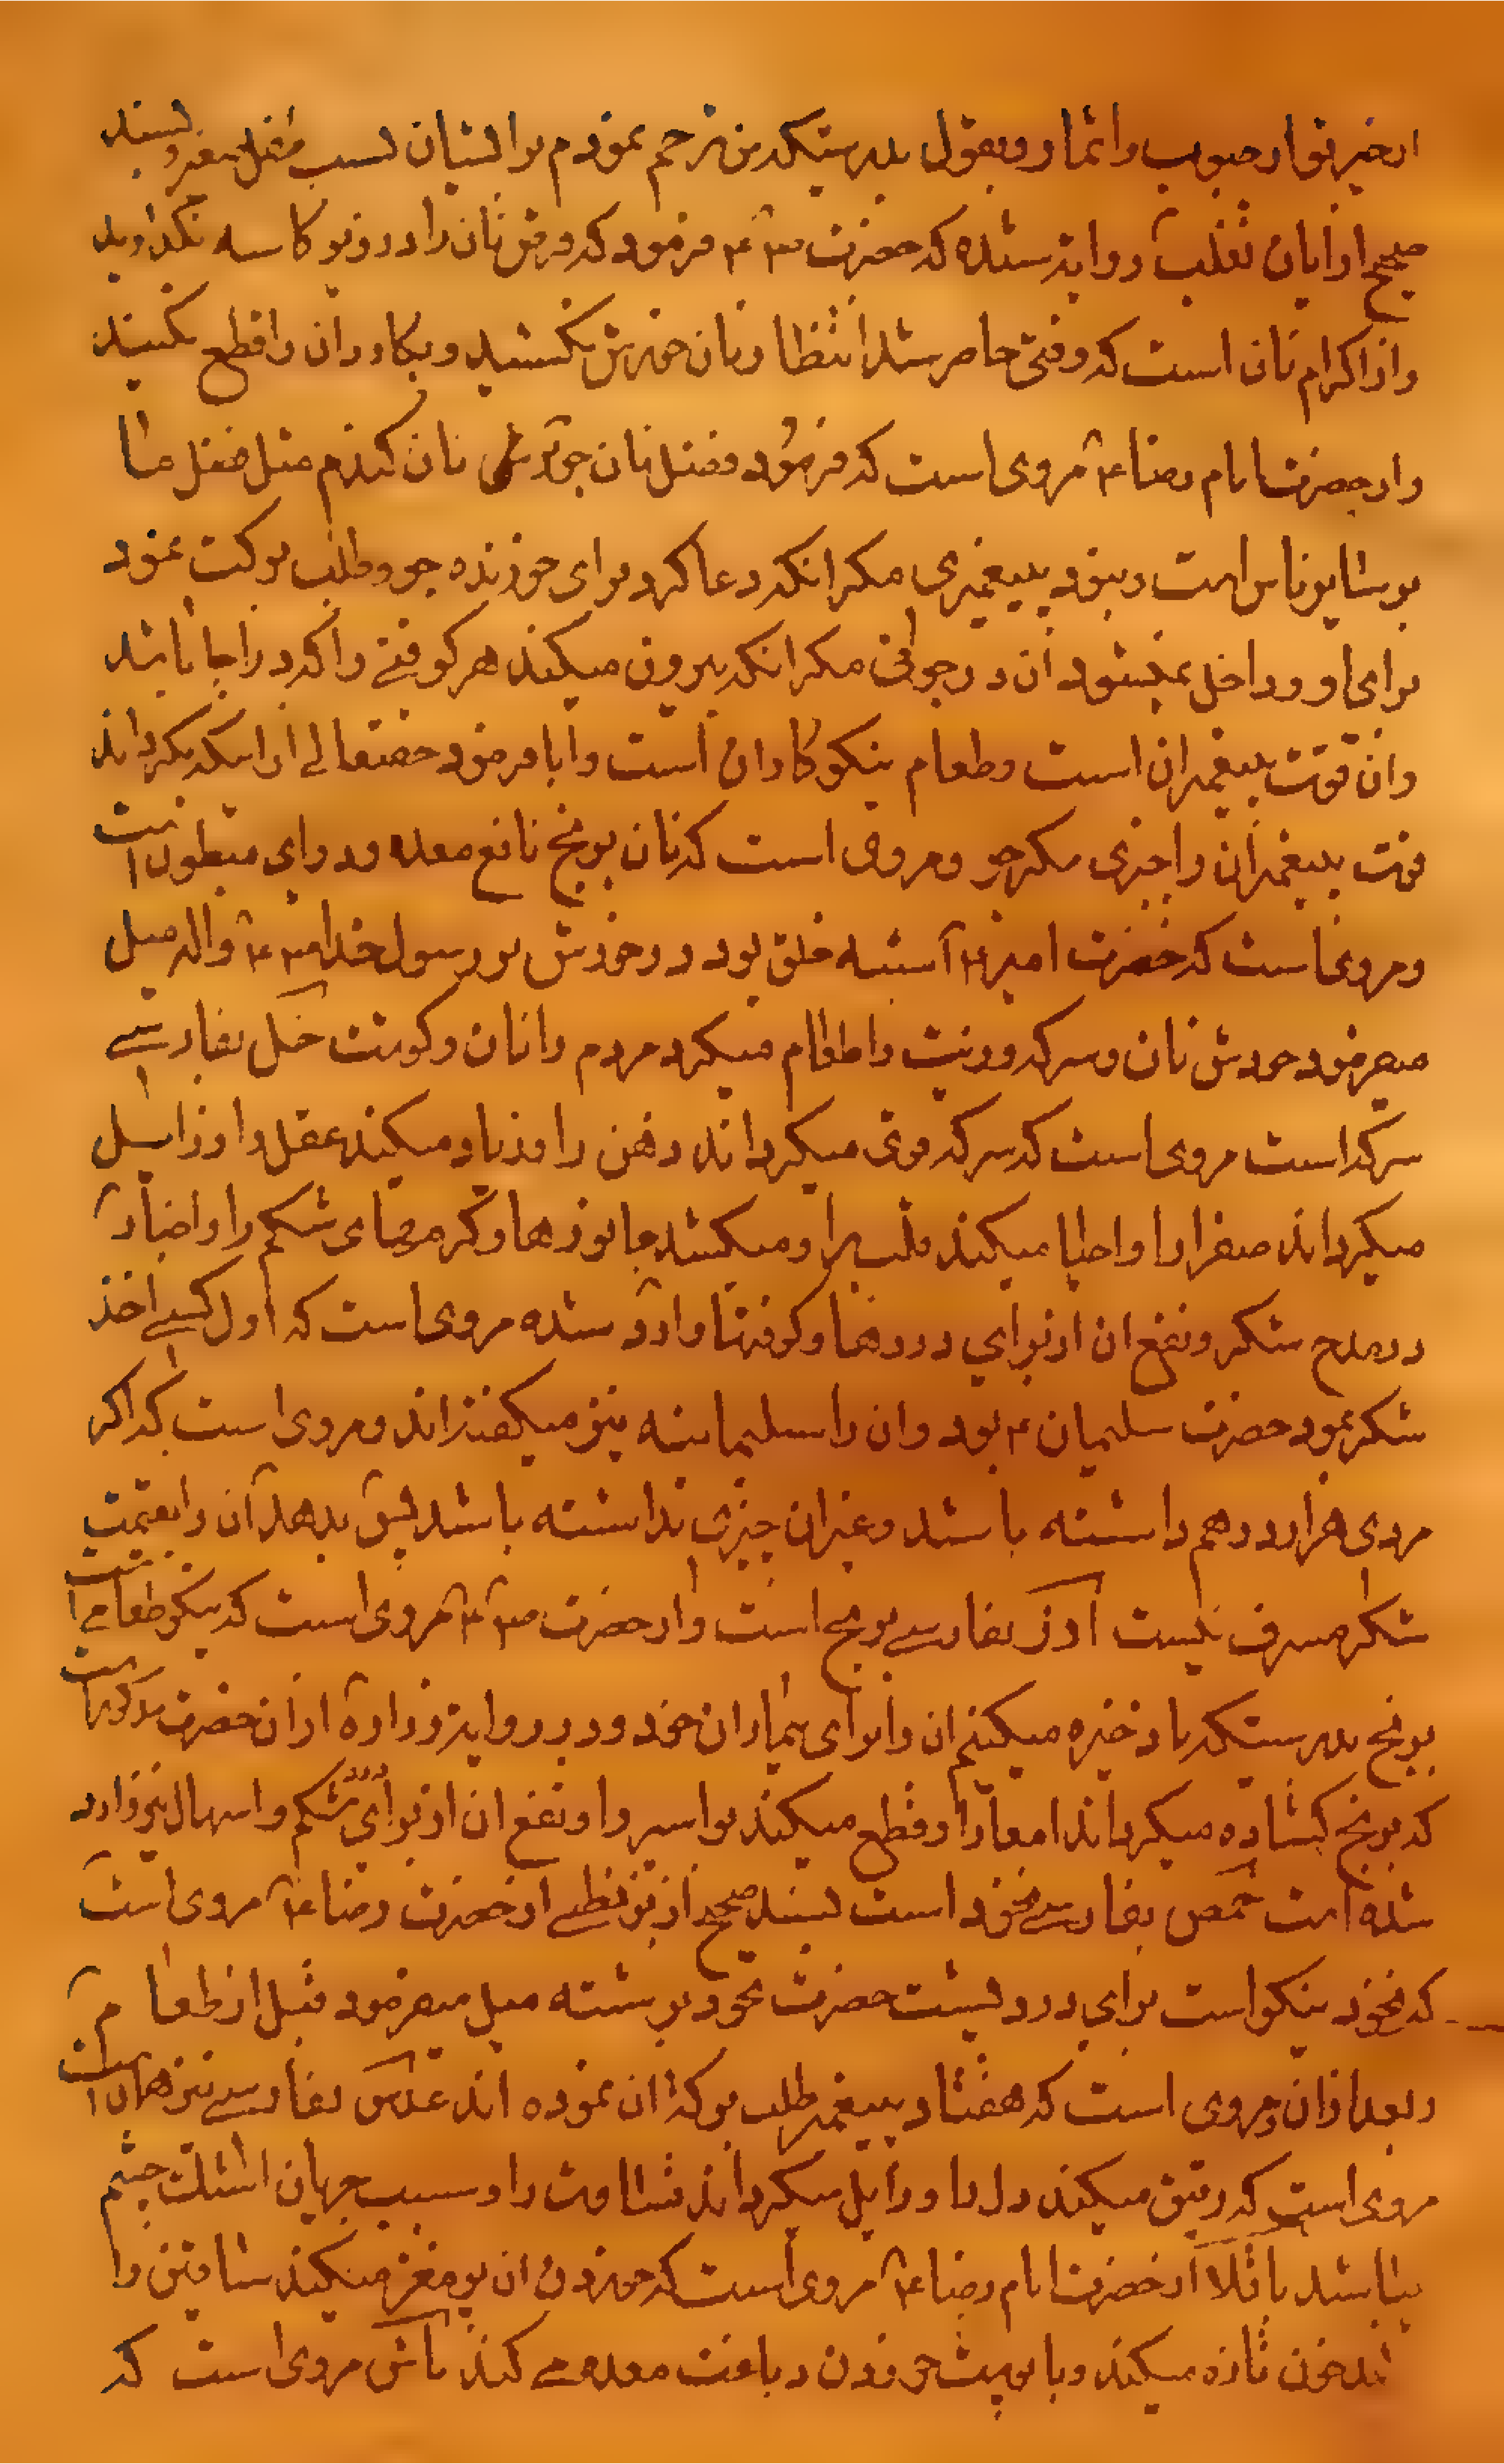 از خبر بقار حبوب و اثمار و بقول بدرستیکه من ترحم نمودم بر ایشان بسبب فقر و بسند
صحیح از ابان تغلب روایت شده که حضرت ص ع فرمود که قرص نان را در زیر کاسه نگذارید
و از اکرام نان است که وقتی حاضر شد انتظار نان خورش نکشید و بکارد ان را قطع نکنید
و از حضرت امام رضا ع مروی است که فرمود فضل نان جو بر نان گندم مثل فضل ما
بر سایر ناس است و نبود پیغمبری مگر انکه دعا کرد برای خورنده جو و طلب برکت نمود
برای او و داخل نمیشود ان در جوفی مگر انکه بیرون میکند هر کوفتی را که در انجا باشد
و ان قوت پیغمبران است و طعام نیکوکاران است و ابا فرمود حقتعالی از اینکه بگرداند
قوت پیغمبران را چیزی مگر جو و مروی است که نان برنج نافع معده و دوای مبطون است
و مروی است که حضرت امیر ع اشبه خلق بود در خورش بر رسول خدا ص ع و اله میل
میفرمود خودش نان و سرکه و زیت و اطعام میکرد مردم را نان و گوشت خل بفارسی
سرکه است مروی است که سرکه قوی میگرداند ذهن را و زیاد میکند عقل را و زایل
میگرداند صفرا را و احیا میکند قلب را و میکشد جانورها و کرمهای شکم را و اخبار
در مدح شکر و نفع ان از برای دردها و کوفتها وارد شده مروی است که اول کسی اخذ
شکر نمود حضرت سلیمان ع بود و ان را سلیمانیه نیز میگفته‌اند و مروی است که اگر
مردی هزار درهم داشته باشد و غیر ان چیزی نداشته باشد پس بدهد ان را بقیمت
شکر مسرف نیست ارز بفارسی برنج است و از حضرت ص ع مروی است که نیکو طعامی است
برنج بدرستیکه ما ذخیره میکنیم ان را برای بیماران خود و در روایت زراره از ان حضرت مذکور است
که برنج گشاده میگرداند امعا را و قطع میکند بواسیر را و نفع ان از برای درد شکم و اسهال نیز وارد
شده است حمص بفارسی نخود است بسند صحیح از بزنطی از حضرت رضا ع مروی است
که نخود نیکو است برای درد پشت حضرت نخود برشته میل میفرمود قبل از طعام
و بعد از ان و مروی است که هفتاد پیغمبر طلب برکه ان نموده اند عدس بفارسی نیز همان است
مروی است که رقیق میکند دل را و زایل میگرداند قساوت را و سبب جریان اشک چشم
میباشد باقلا از حضرت امام رضا ع مروی است که خوردن ان پر مغز میکند ساقین را
خون تازه میکند و با پوست خوردن دباغت معده می کند ماش مروی است که